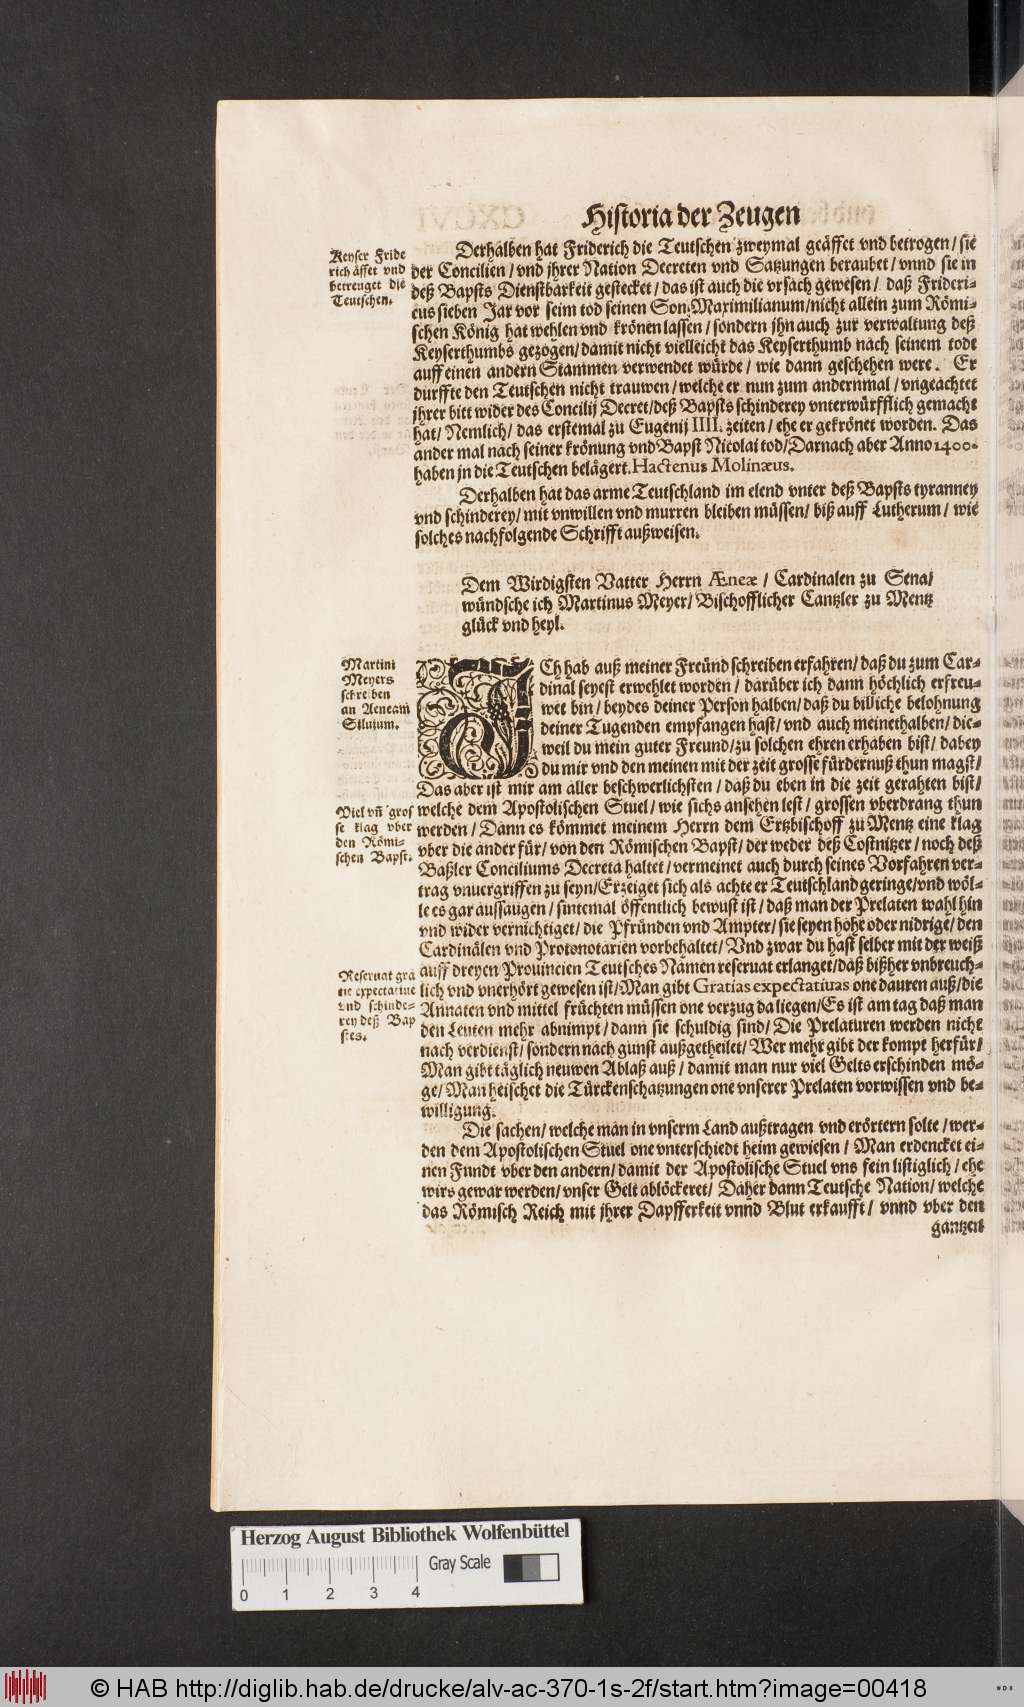 Historia der Zeugen
Keyser Fride
rich äffet vnd
betreuget die
Teutschen.
Derhalben hat Friderich die Teutschen zweymal geäffet vnd betrogen/ sie
der Concilien/ vnd jhrer Nation Decreten vnd Satzungen beraubet/ vnnd sie in
deß Bapsts Dienstbarkeit gestecket/ das ist auch die vrsach gewesen/ daß Frideri-
cus sieben Jar vor seim tod seinen Son Maximilianum/ nicht allein zum Römi-
schen König hat wehlen vnd krönen lassen/ sondern jhn auch zur verwaltung deß
Keyserthumbs gezogen/ damit nicht vielleicht das Keyserthumb nach seinem todt
auff einen andern Stammen verwendet würde/ wie dann geschehen were. Er
durffte den Teutschen nicht trauwen/ welche er nun zum andernmal/ vngeachtet
jhrer bitt wider des Concilij Decret/ deß Bapsts schinderey vnterwürfflich gemacht
hat/ Nemlich/ das erstemal zu Eugenij IIII. zeiten/ ehe er gekrönet worden. Das
ander mal nach seiner krönung vnd Bapst Nicolai tod/ Darnach aber Anno 1400.
haben jn die Teutschen belägert. Hactenus Molinæus.
Derhalben hat das arme Teutschland im elend vnter deß Bapsts tyranney
vnd schinderey/ mit vnwillen vnd murren bleiben müssen/ biß auff Lutherum/ wie
solches nachfolgende Schrifft außweisen.
Dem Wirdigsten Vatter Herrn Æneæ/ Cardinalen zu Sena/
wündsche ich Martinus Meyer/ Bischofflicher Cantzler zu Mentz
glück vnd heyl.
Martini
Meyers
schreiben
an Aeneam
Siluium.
JCh hab auß meiner Freünd schreiben erfahren/ daß du zum Car-
dinal seyest erwehlet worden/ darüber ich dann höchlich erfreu-
wet bin/ beydes deiner Person halben/ daß du billiche belohnung
deiner Tugenden empfangen hast/ vnd auch meinethalben/ die-
weil du mein guter Freund/ zu solchen ehren erhaben bist/ dabey
du mir vnd den meinen mit der zeit grosse fürdernuß thun magst/
Das aber ist mir am aller beschwerlichsten/ daß du eben in die zeit gerahten bist/
Viel vñ gros
se klag vber
den Römi-
schen Bapst.
welche dem Apostolischen Stuel/ wie sichs ansehen lest/ grossen vberdrang thun
werden/ Dann es kömmet meinem Herrn dem Ertzbischoff zu Mentz eine klag
vber die ander für/ von den Römischen Bapst/ der weder deß Costnitzer/ noch deß
Baßler Conciliums Decreta haltet/ vermeinet auch durch seines Vorfahren ver-
trag vnuergriffen zu seyn/ Erzeiget sich als achte er Teutschland geringe/ vnd wöl-
le es gar aussaugen/ sintemal öffentlich bewust ist/ daß man der Prelaten wahl hin
vnd wider vernichtiget/ die Pfründen vnd Ampter/ sie seyen hohe oder nidrige/ den
Cardinälen vnd Protonotarien vorbehaltet/ Vnd zwar du hast selber mit der weiß
Reseruat gra
tie expectatiue
vnd schinde-
rey deß Bap
stes.
auff dreyen Prouincien Teutsches Namen reseruat erlanget/ daß bißher vnbreuch-
lich vnd vnerhört gewesen ist/ Man gibt Gratias expectatiuas one dauren auß/ die
Annaten vnd mittel früchten müssen one verzug da liegen/ Es ist am tag daß man
den Leuten mehr abnimpt/ dann sie schuldig sind/ Die Prelaturen werden nicht
nach verdienst/ sondern nach gunst außgetheilet/ Wer mehr gibt der kompt herfür/
Man gibt täglich neuwen Ablaß auß/ damit man nur viel Gelts erschinden mö-
ge/ Man heischet die Türckenschatzungen one vnserer Prelaten vorwissen vnd be-
willigung.
Die sachen/ welche man in vnserm Land außtragen vnd erörtern solte/ wer-
den dem Apostolischen Stuel one vnterschiedt heim gewiesen/ Man erdencket ei-
nen Fundt vber den andern/ damit der Apostolische Stuel vns fein listiglich/ ehe
wirs gewar werden/ vnser Gelt ablöckeret/ Daher dann Teutsche Nation/ welche
das Römisch Reich mit jhrer Dapfferkeit vnnd Blut erkaufft/ vnnd vber den
gantzen
Herzog August Bibliothek Wolfenbüttel
Gray Scale
0 1 2 3 4
© HAB http://diglib.hab.de/drucke/alv-ac-370-1s-2f/start.htm?image=00418